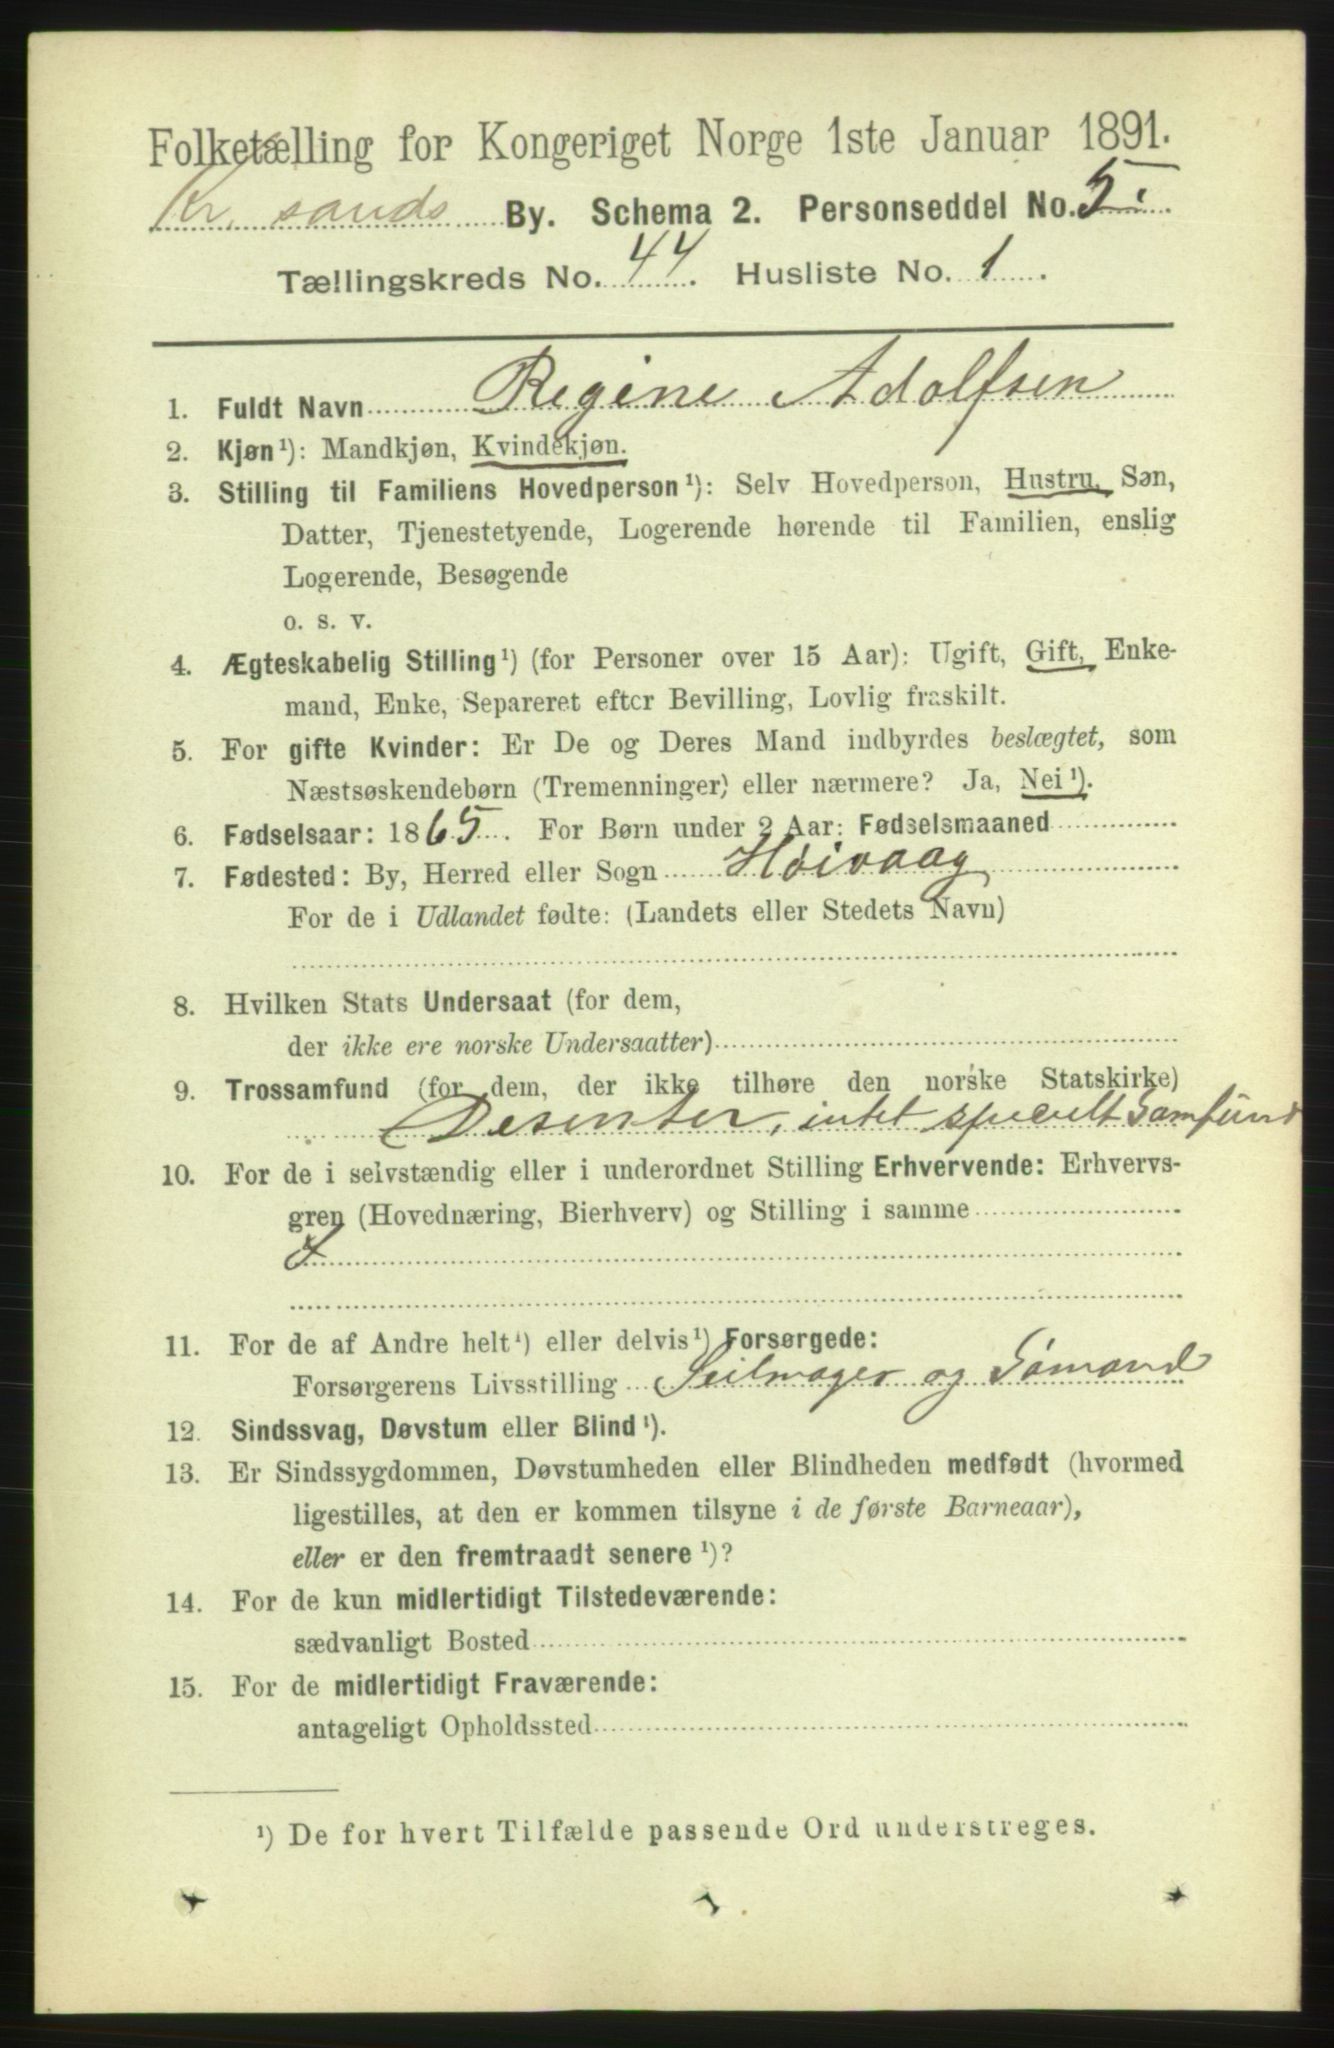 Folketælling for Kongeriget Norge 1ste Januar 1891.
Kr. sands By. Schema 2. Personseddel No. 5.
Tællingskreds No. 44. Husliste No. 1.
1. Fuldt Navn Regine Adolfsen
2. Kjøn¹): Mandkjøn, Kvindekjøn.
3. Stilling til Familiens Hovedperson¹): Selv Hovedperson, Hustru, Søn,
Datter, Tjenestetyende, Logerende hørende til Familien, enslig
Logerende, Besøgende
o. s. v.
4. Ægteskabelig Stilling¹) (for Personer over 15 Aar): Ugift, Gift, Enke-
mand, Enke, Separeret efter Bevilling, Lovlig fraskilt.
5. For gifte Kvinder: Er De og Deres Mand indbyrdes beslægtet, som
Næstsøskendebørn (Tremenninger) eller nærmere? Ja, Nei¹).
6. Fødselsaar: 1865. For Børn under 2 Aar: Fødselsmaaned
7. Fødested: By, Herred eller Sogn Høivaag
For de i Udlandet fødte: (Landets eller Stedets Navn)
8. Hvilken Stats Undersaat (for dem,
der ikke ere norske Undersaatter)
9. Trossamfund (for dem, der ikke tilhøre den norske Statskirke)
Desenter, intet specielt Samfund
10. For de i selvstændig eller i underordnet Stilling Erhvervende: Erhvervs-
gren (Hovednæring, Bierhverv) og Stilling i samme
11. For de af Andre helt¹) eller delvis¹) Forsørgede:
Forsørgerens Livsstilling Seilmager og Sømand
12. Sindssvag, Døvstum eller Blind¹).
13. Er Sindssygdommen, Døvstumheden eller Blindheden medfødt (hvormed
ligestilles, at den er kommen tilsyne i de første Barneaar),
eller er den fremtraadt senere¹)?
14. For de kun midlertidigt Tilstedeværende:
sædvanligt Bosted
15. For de midlertidigt Fraværende:
antageligt Opholdssted
¹) De for hvert Tilfælde passende Ord understreges.